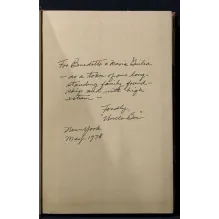 For Benedetto & Maria Giulia
— as a token of our long-
standing family friend-
ship and with high
esteem —
Fondly,
"Uncle
New York
May, 1978